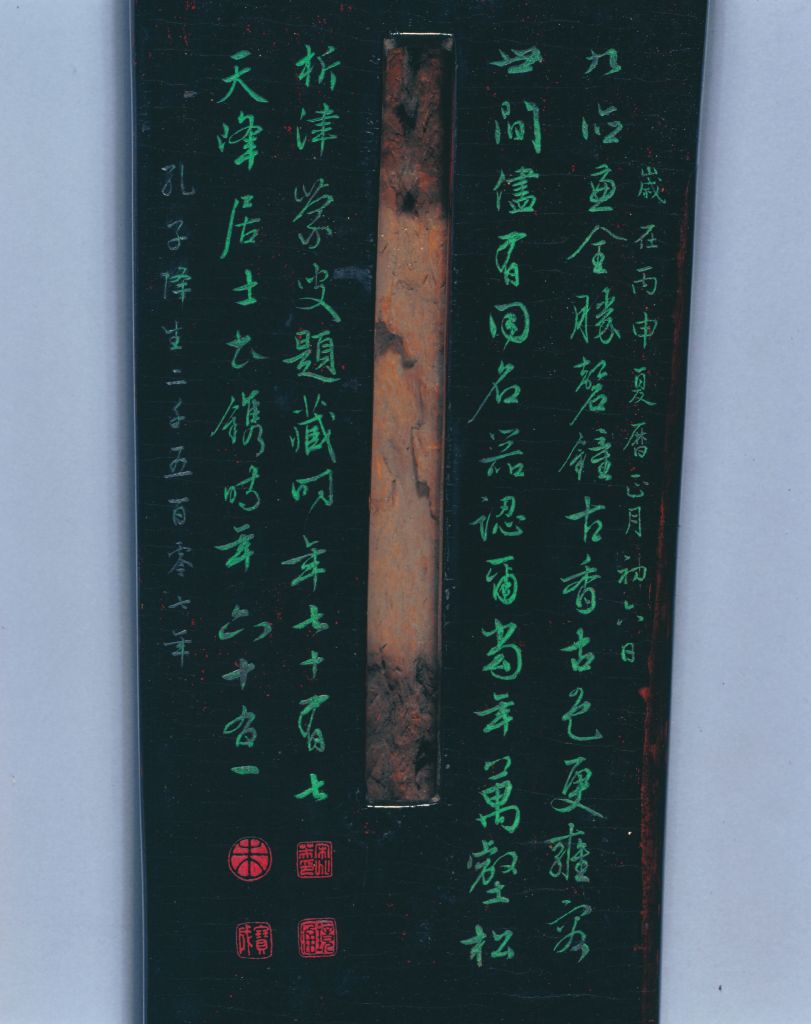 歲在丙申夏曆正月初六日
九德兼全勝磬鐘古香古色更雍容
世間儘有同名器認爾當年萬壑松
析津蒙叟題藏時年七十有七
天峰居士書鐫時年六十有一
孔子降生二千五百零七年
朱
寶成